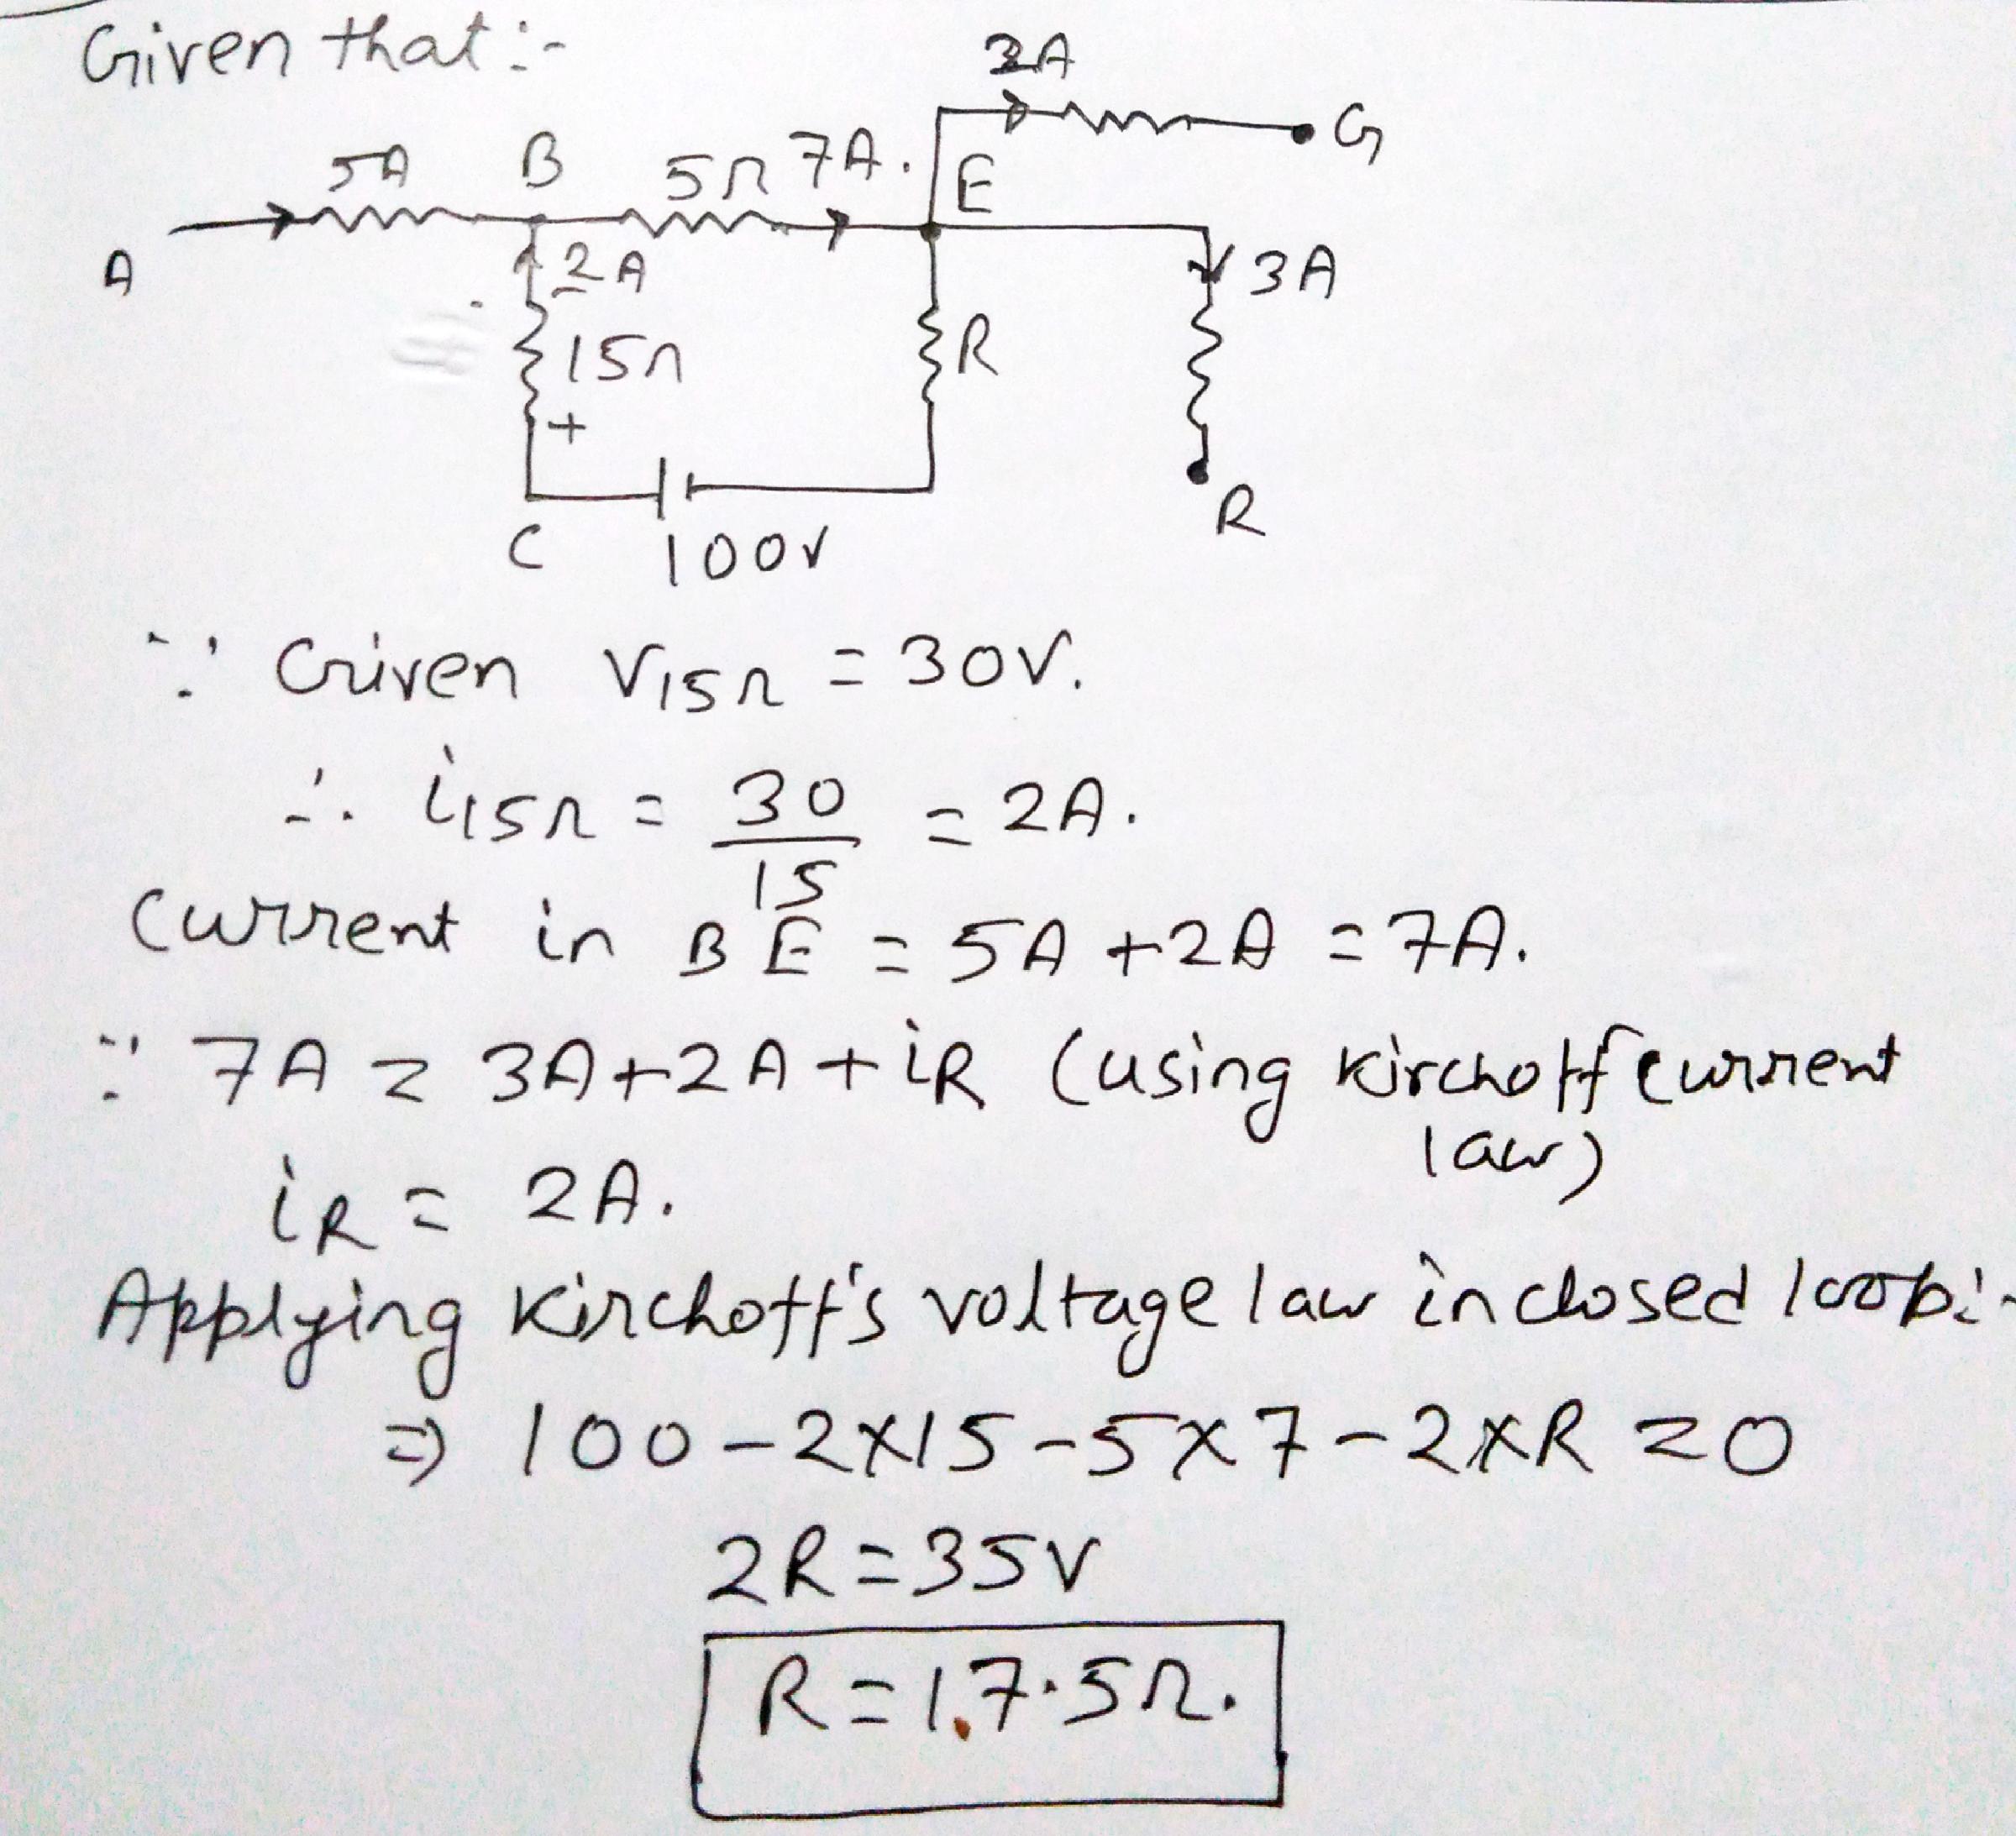 Given that :-
2A
G
5A B 5Ω 7A. E
A 2A 3A
15Ω R
+
R
C 100V
∵ Given V15Ω = 30V.
∴ i15Ω = 30/15 = 2A.
Current in BE = 5A + 2A = 7A.
∵ 7A = 3A + 2A + iR (using Kirchoff current
law)
iR = 2A.
Applying Kirchoff's voltage law in closed loop:-
⇒ 100 - 2×15 - 5×7 - 2×R = 0
2R = 35V
R = 17.5Ω.